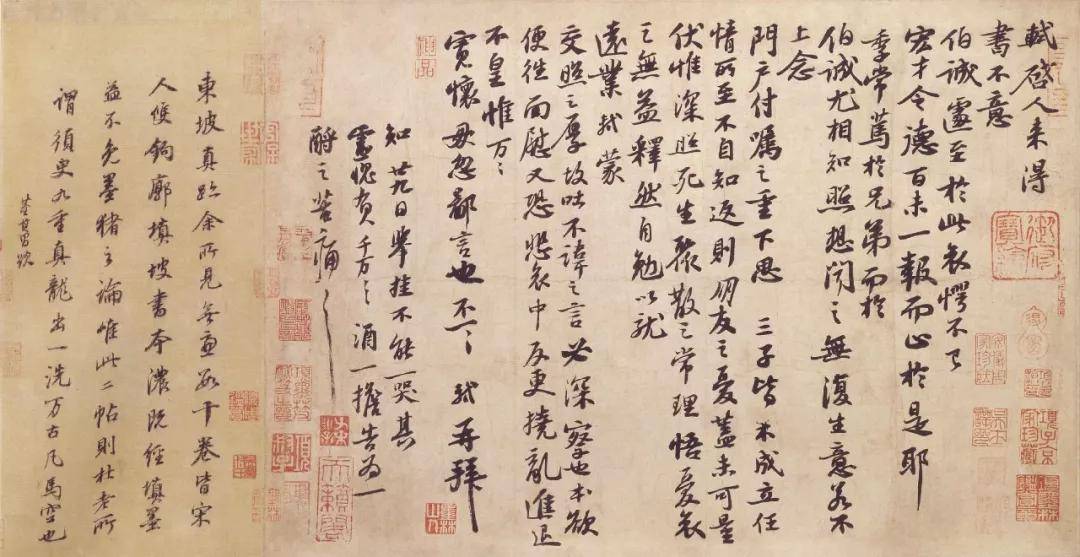 軾啓人來得
書不意
伯誠遽至於此哀愕不已
宏才令德百未一報而止於是耶
季常篤於兄弟而於
伯誠尤相知照想聞之無復生意若不
上念
門户付囑之重下思 三子皆未成立任
情所至不自知返則朋友之憂蓋未可量
伏惟深照死生聚散之常理悟憂哀
之無益釋然自勉以就
遠業軾蒙
交照之厚故吐不諱之言必深察也本欲
便往面慰又恐悲哀中反更撓亂進退
不皇惟万々
寬懷毋忽鄙言也不一々 軾再拜
知廿九日舉挂不能一哭其
靈愧負千万々酒一擔告為一
酹之苦痛々
東坡真跡余所見無慮數十卷皆宋
人雙鉤廓填坡書本濃既經填墨
益不免墨豬之論惟此二帖則杜老所
謂須臾九重真龍出一洗万古凡馬空也
董其昌題